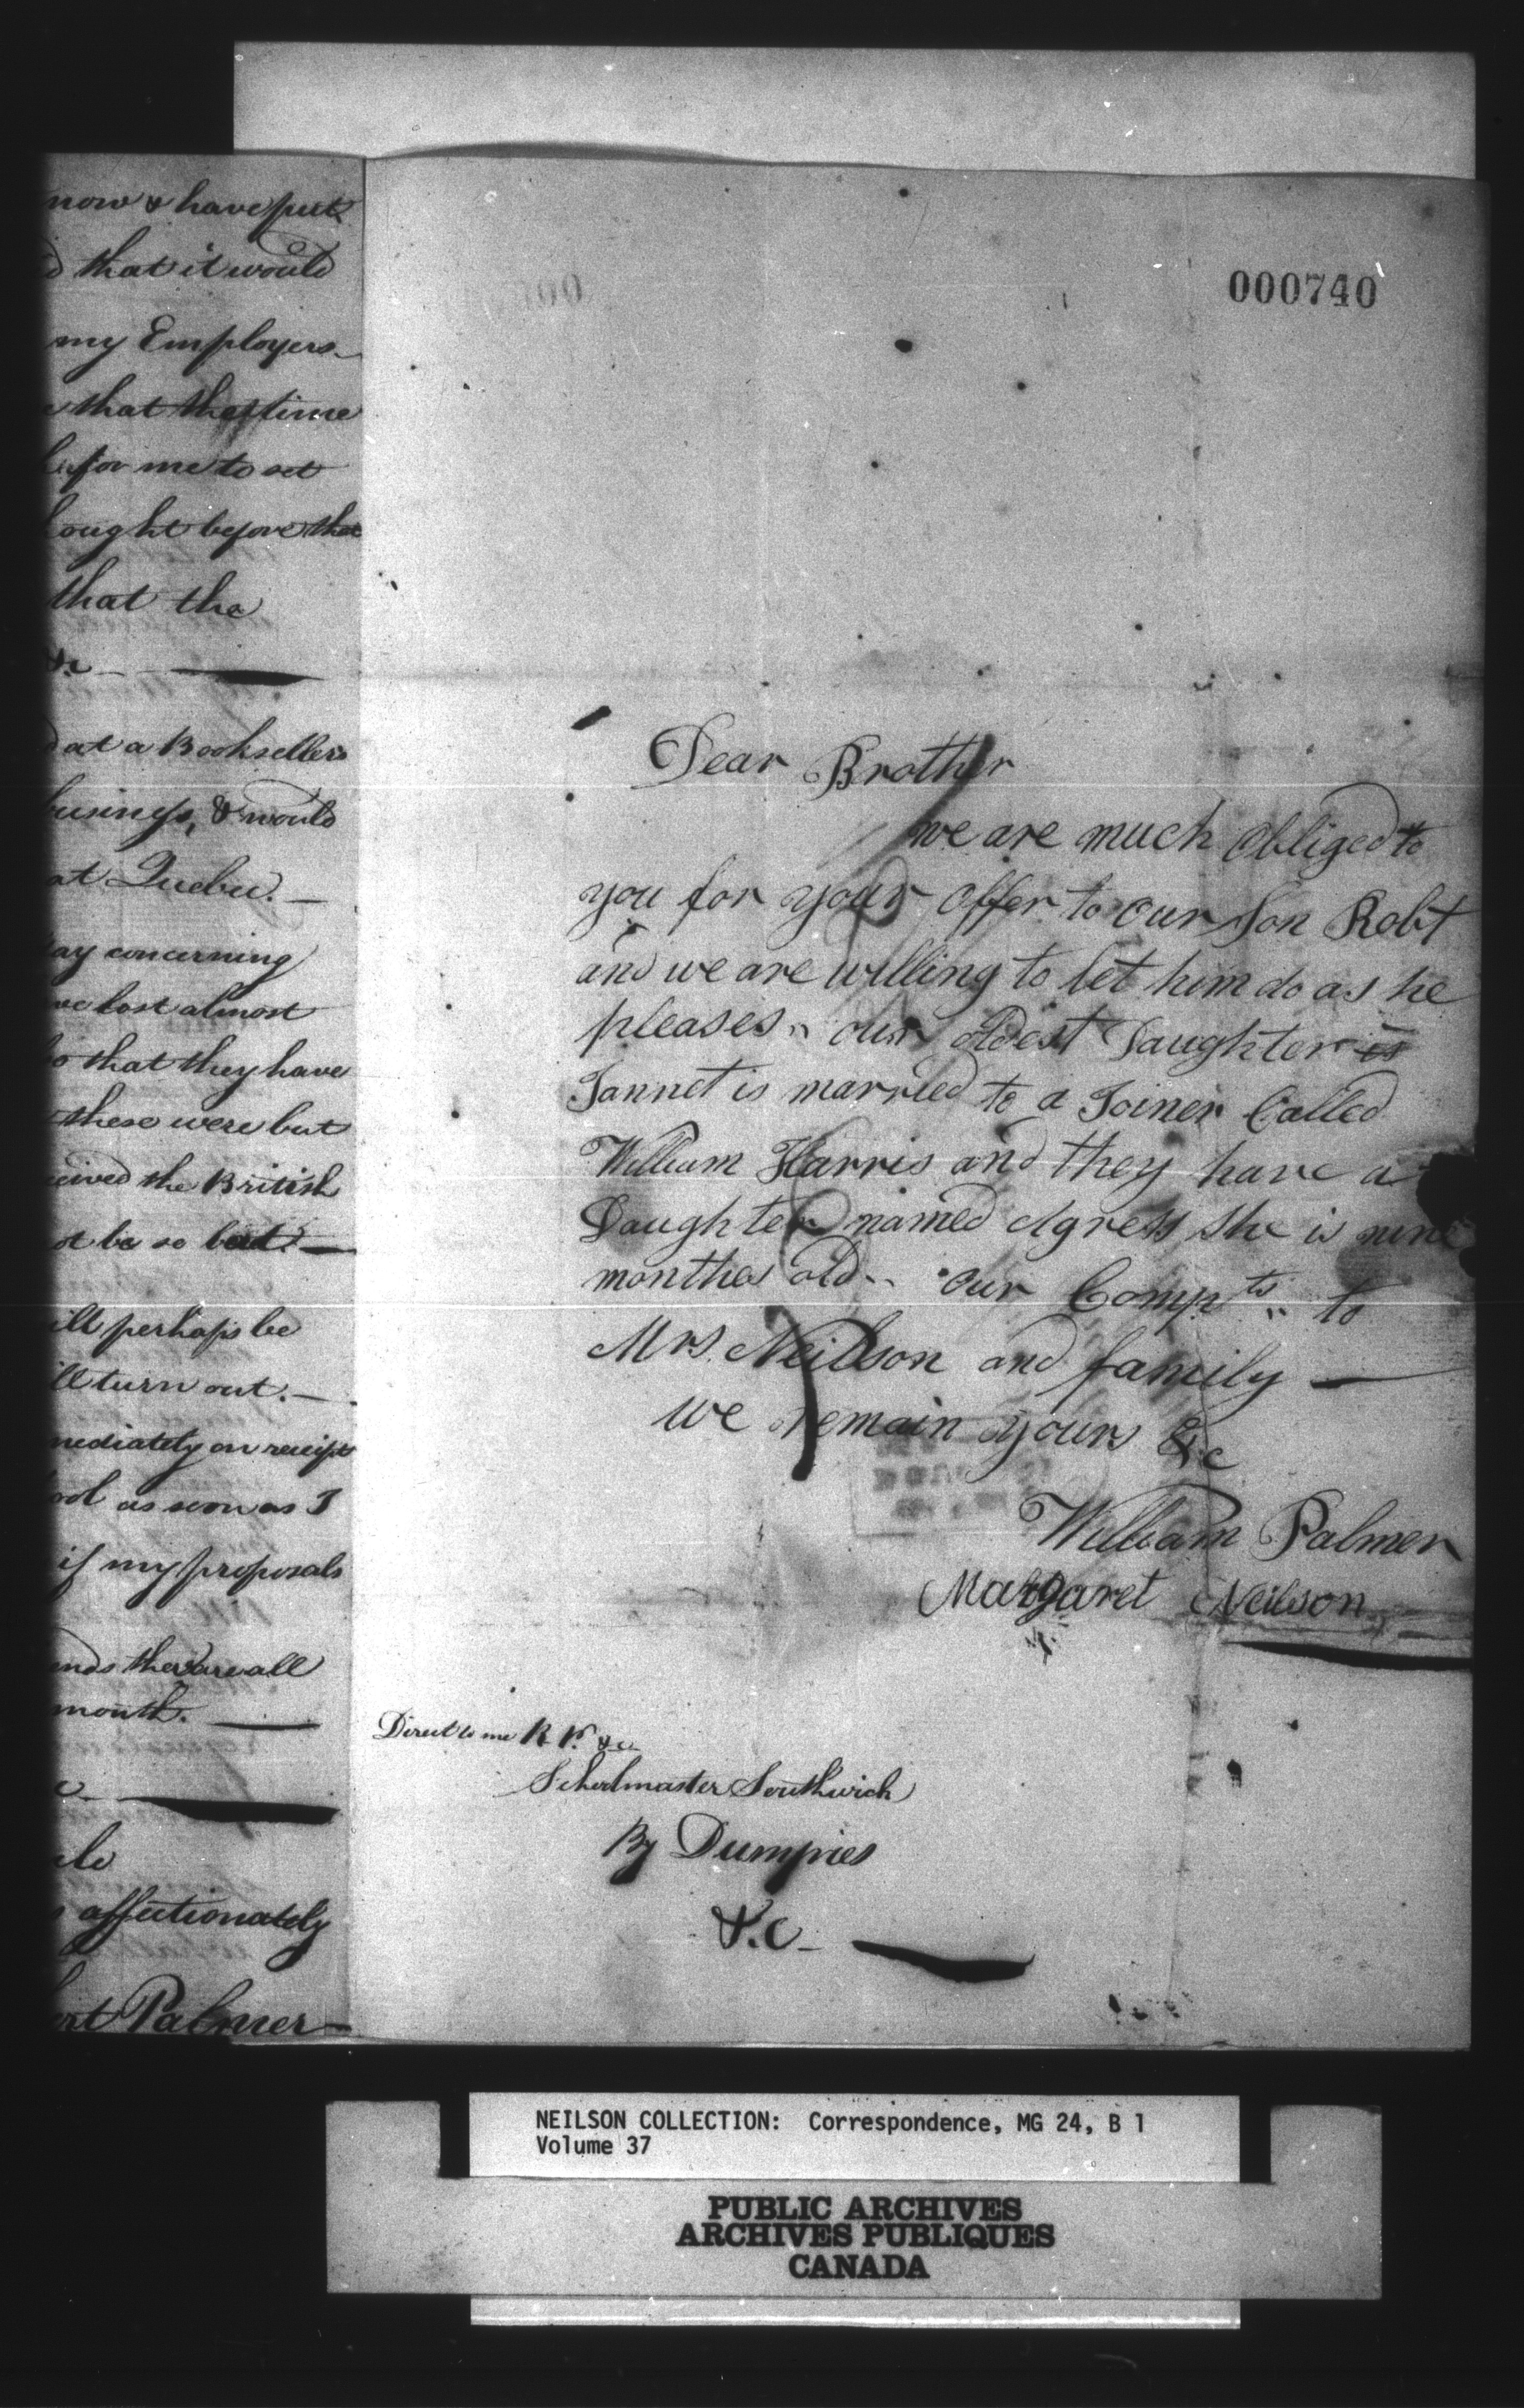 now & have put
that it would
my Employers
that the time
for me to set
ought before the
that the
&c
at a Booksellers
business, & would
at Quebec.
ay concerning
ve lost almost
o that they have
these were but
eived the British
ot be so bad.
ill perhaps be
ill turn out.
mediately on receipt
ool as soon as I
if my proposals
ends they are all
month.
affectionately
ert Palmer
000740
Dear Brother
we are much Obliged to
you for your Offer to our Son Robt
and we are willing to let him do as he
pleases,, our oldest Daughter is
Jannet is married to a Joiner Called
William Harris and they have a
Daughter named Agress she is nine
months old,, our Compts,, to
Mrs. Neilson and family
we remain yours &c
William Palmer
Margaret Neilson
Direct to me R P. &c
Schoolmaster Southwick
By Dumfries
&.c
NEILSON COLLECTION: Correspondence, MG 24, B 1
Volume 37
PUBLIC ARCHIVES
ARCHIVES PUBLIQUES
CANADA